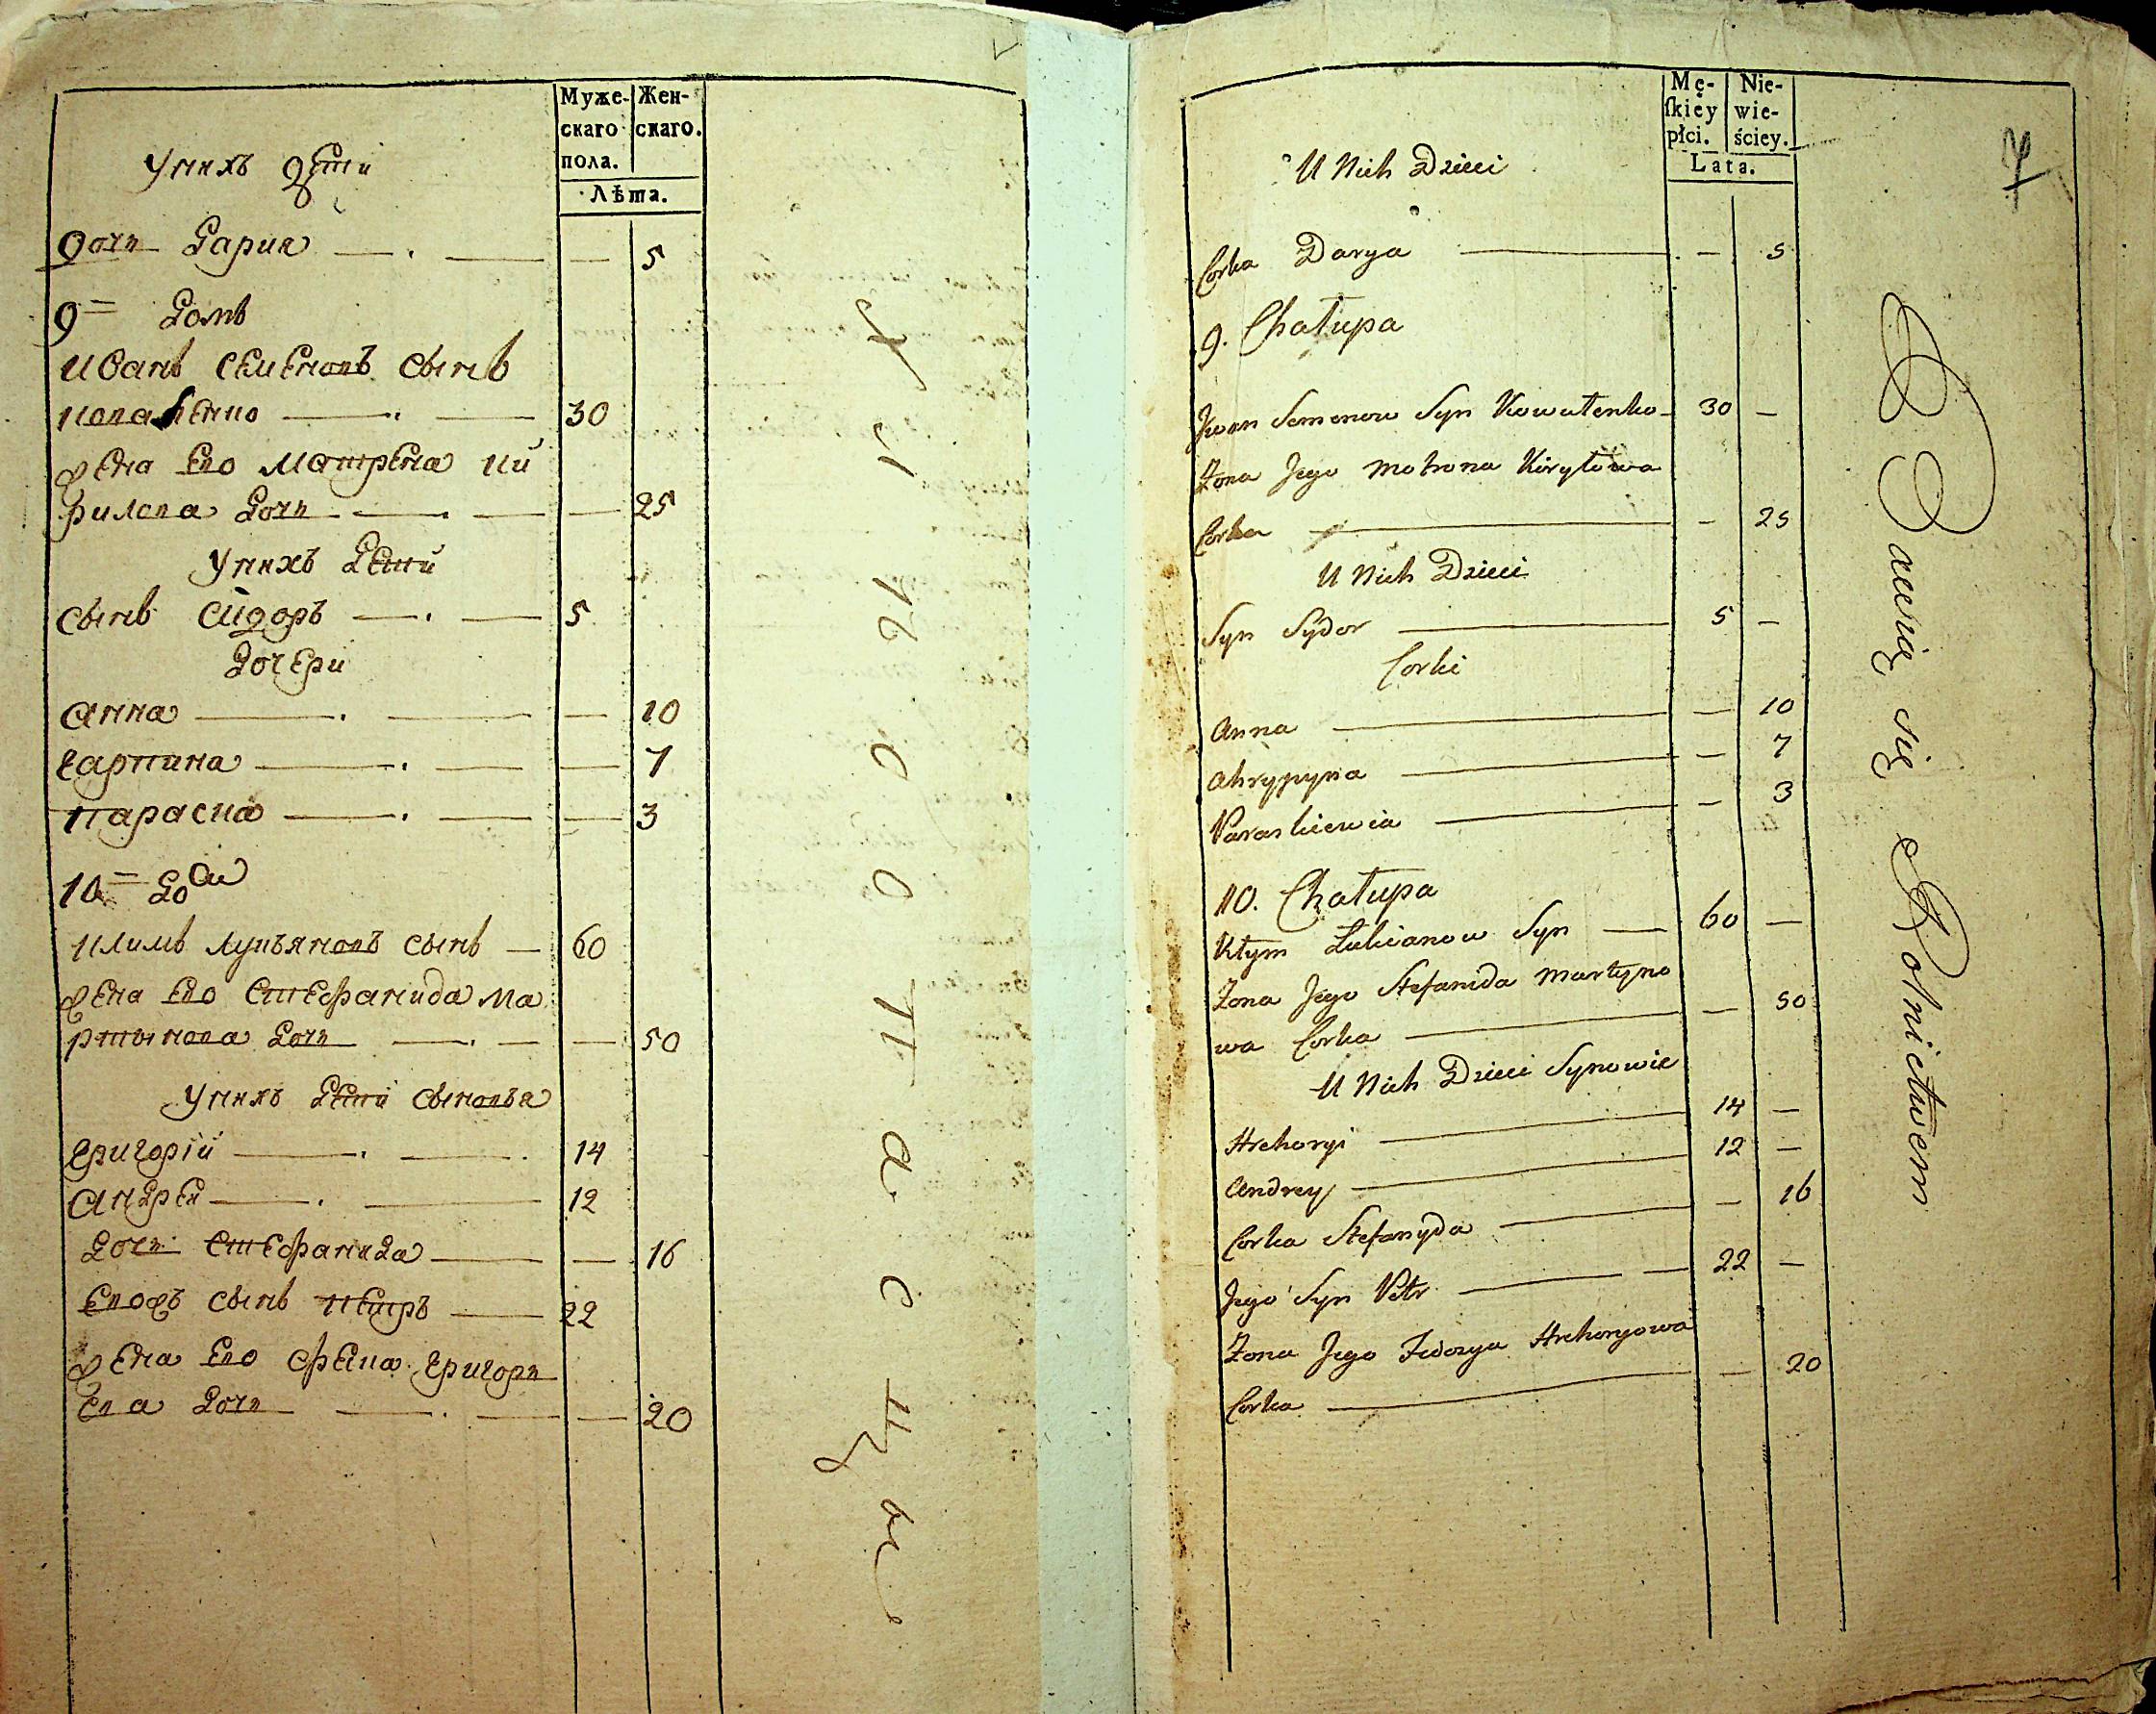 Муже-
скаго
пола.
Жен-
скаго.
Лѣта.
У нихъ дети
дочь Дария 5
9 = Домъ
Иванъ Семеновъ сынъ
коваленко 30
жена ево Матрена Ки
рилова дочь 25
У нихъ дети
сынъ Сидоръ 5
Дочери
Анна 10
Гарпина 7
Параска 3
10 = Дом
Климъ Лукъяновъ сынъ 60
жена ево Стефанида Ма
ртынова дочь 50
У нихъ дети сыновья
Григорій 14
Андрей 12
дочь Стефанида 16
евожъ сынъ Петръ 22
жена ево Григорь
ева дочь 20
хлебопасцы
Mę-
ſkiéy
płci.
Nie-
wie-
ściey.
Lata.
7
U Nich Dzieci
Corka Darya 5
9. Chałupa
Jwan Semenow Syn Kowalenko 30
Żona Jego Motrona Kiryłowa
Corka 25
U Nich Dzieci
Syn Sydor 5
Corki
Anna 10
Ahrypyna 7
Paraskiewia 3
10. Chałupa
Kłym Łukianow Syn 60
Żona Jego Stefanida Martyno
wa Corka 50
U Nich Dzieci Synowie
Hrehoryi 14
Andrey 12
Corka Stefanyda 16
Jego Syn Petr 22
Żona Jego Fedosya Hrehoryowa
Corka 20
Bawią się Rolnictwem